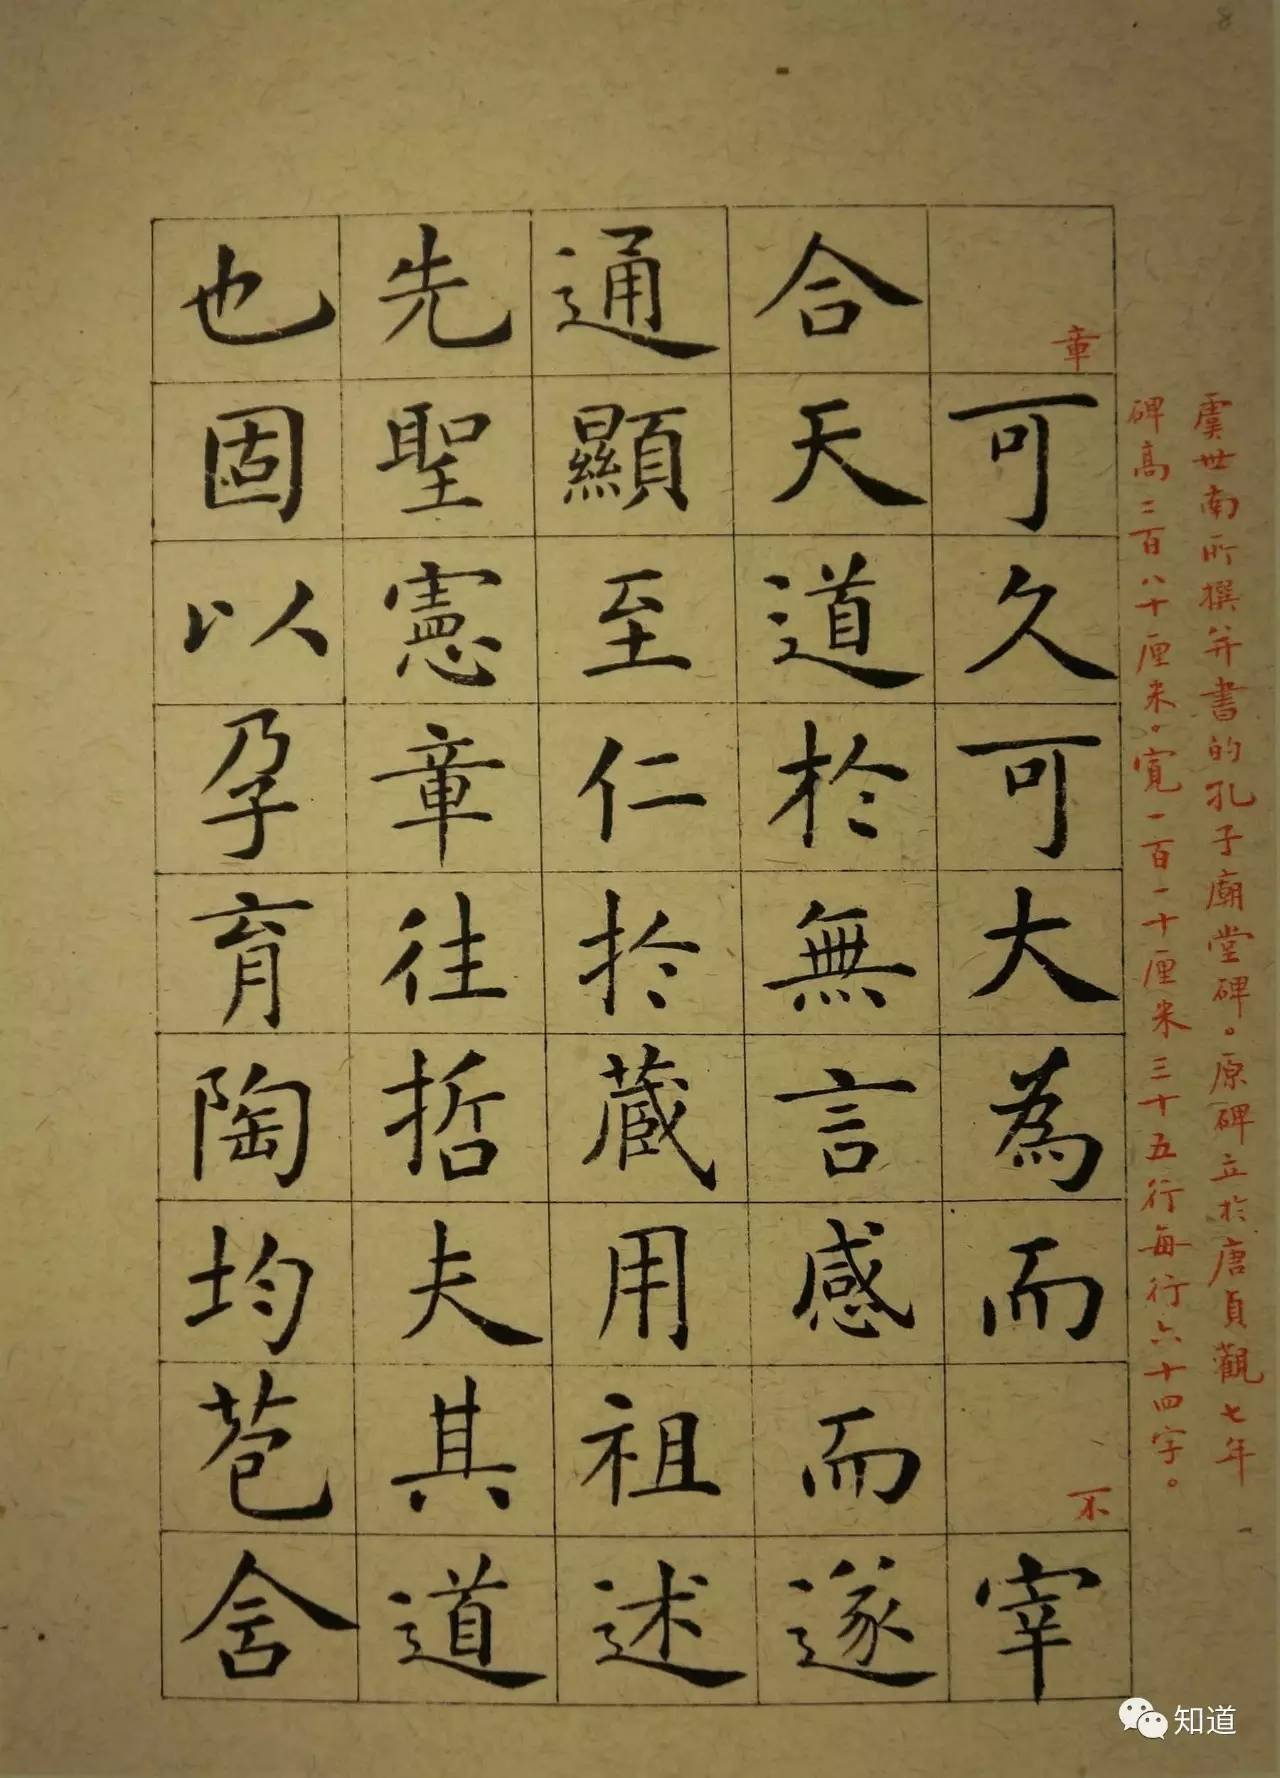 8
虞世南所撰并書的孔子廟堂碑。原碑立於唐貞觀七年
碑高二百八十厘米。寬一百一十厘米三十五行每行六十四字。
章可久可大為而不宰
合天道於無言感而遂
通顯至仁於藏用祖述
先聖憲章往哲夫其道
也固以孕育陶均苞含
知道